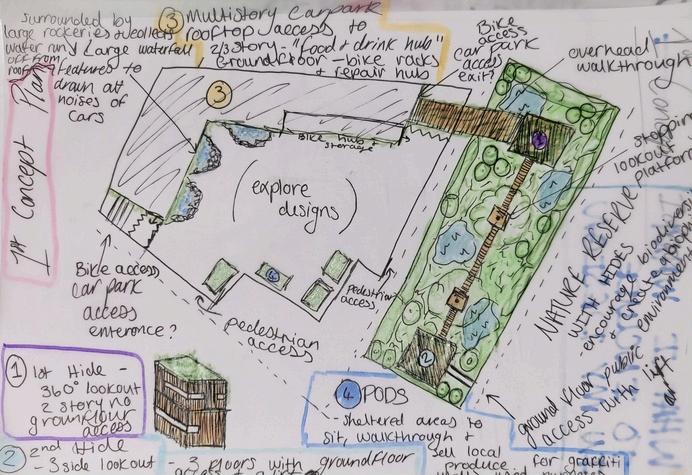 surrounded by
large rockeries & collects
water run
off from
roof
③ Multistory Carpark
rooftop access to
2/3 story - "food & drink hub"
Groundfloor - bike racks
& repair hub
Large waterfall
features to
drown out
noises of
cars
Bike
access
car park
access
exit?
overhead
walkthrough
1st Concept Plan
3
Bike hub &
storage
1
stopping
lookout
platform
(explore
designs)
NATURE RESERVE
WITH HIDES
- encourage
& create a
environment
Bike access
car park
access
enterence?
4
Pedestrian
access
pedestrian
access
2
ground floor public
access with lift
① 1st Hide -
360° lookout
2 story no
grounflour
access
④ PODS
- sheltered areas to
sit, walkthrough &
sell local
produce
for graffiti
② 2nd Hide
- 3 side lookout
- 3 floors with groundfloor